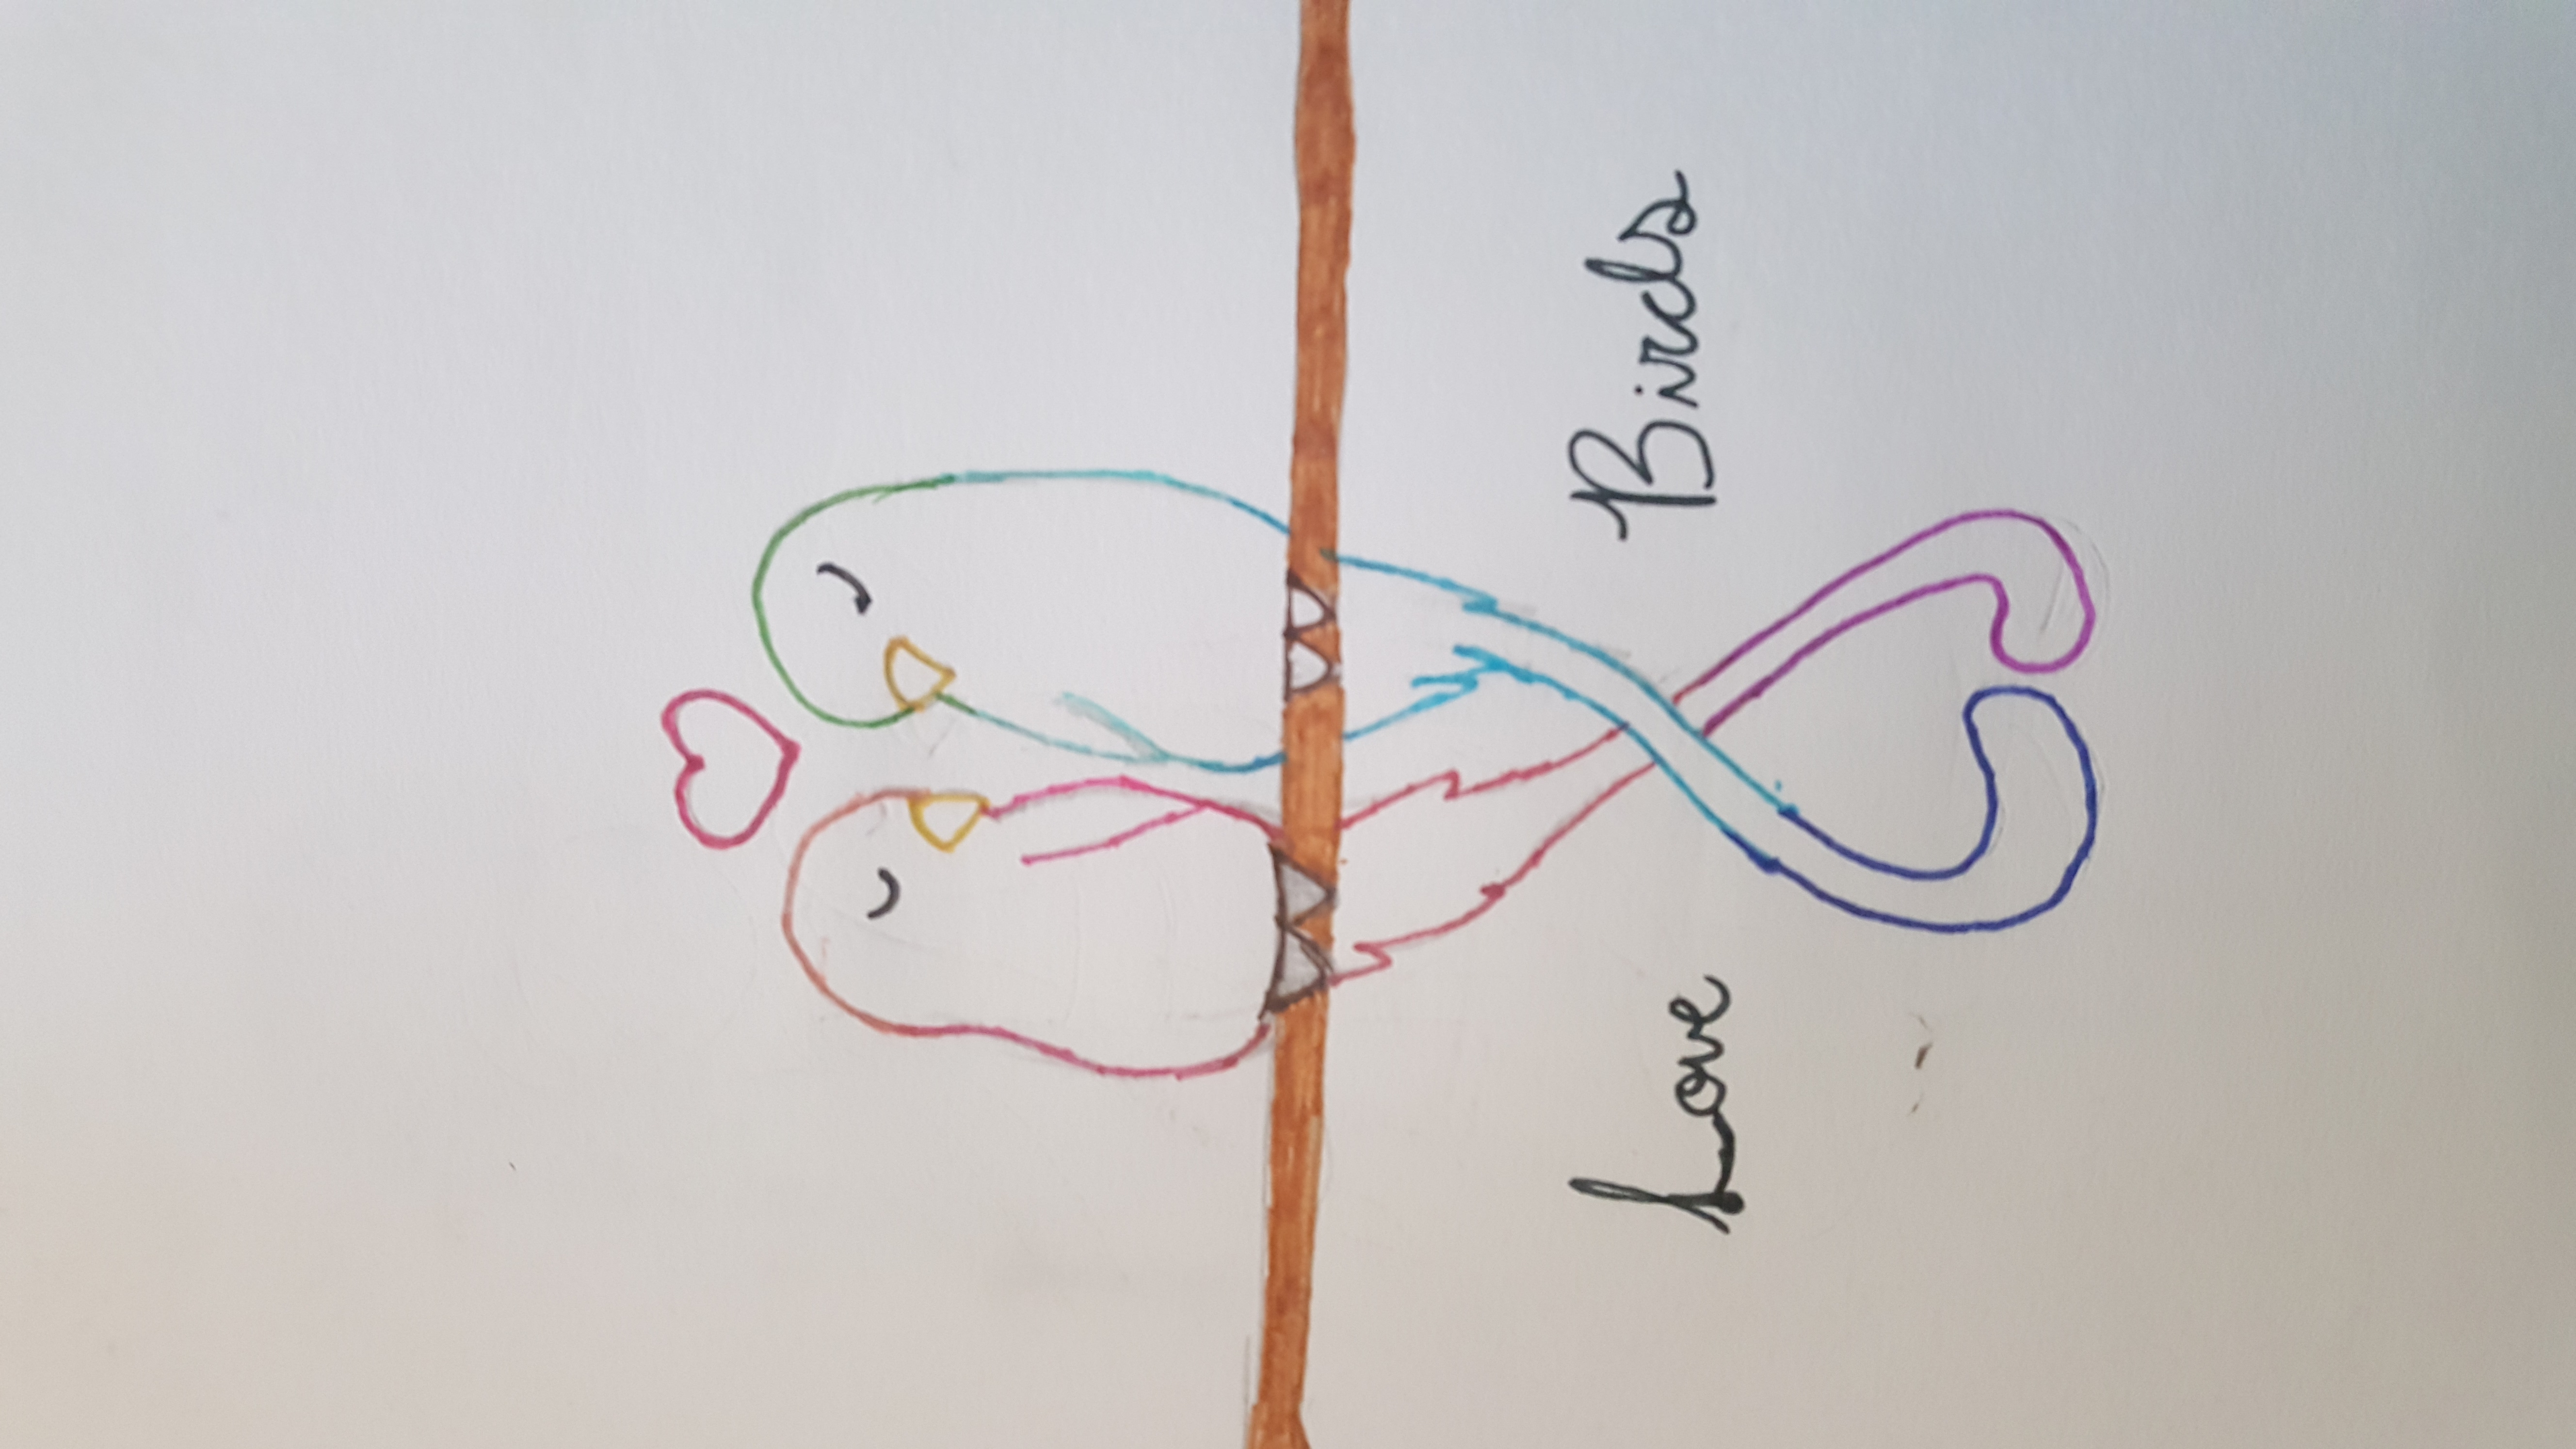 Love Birds